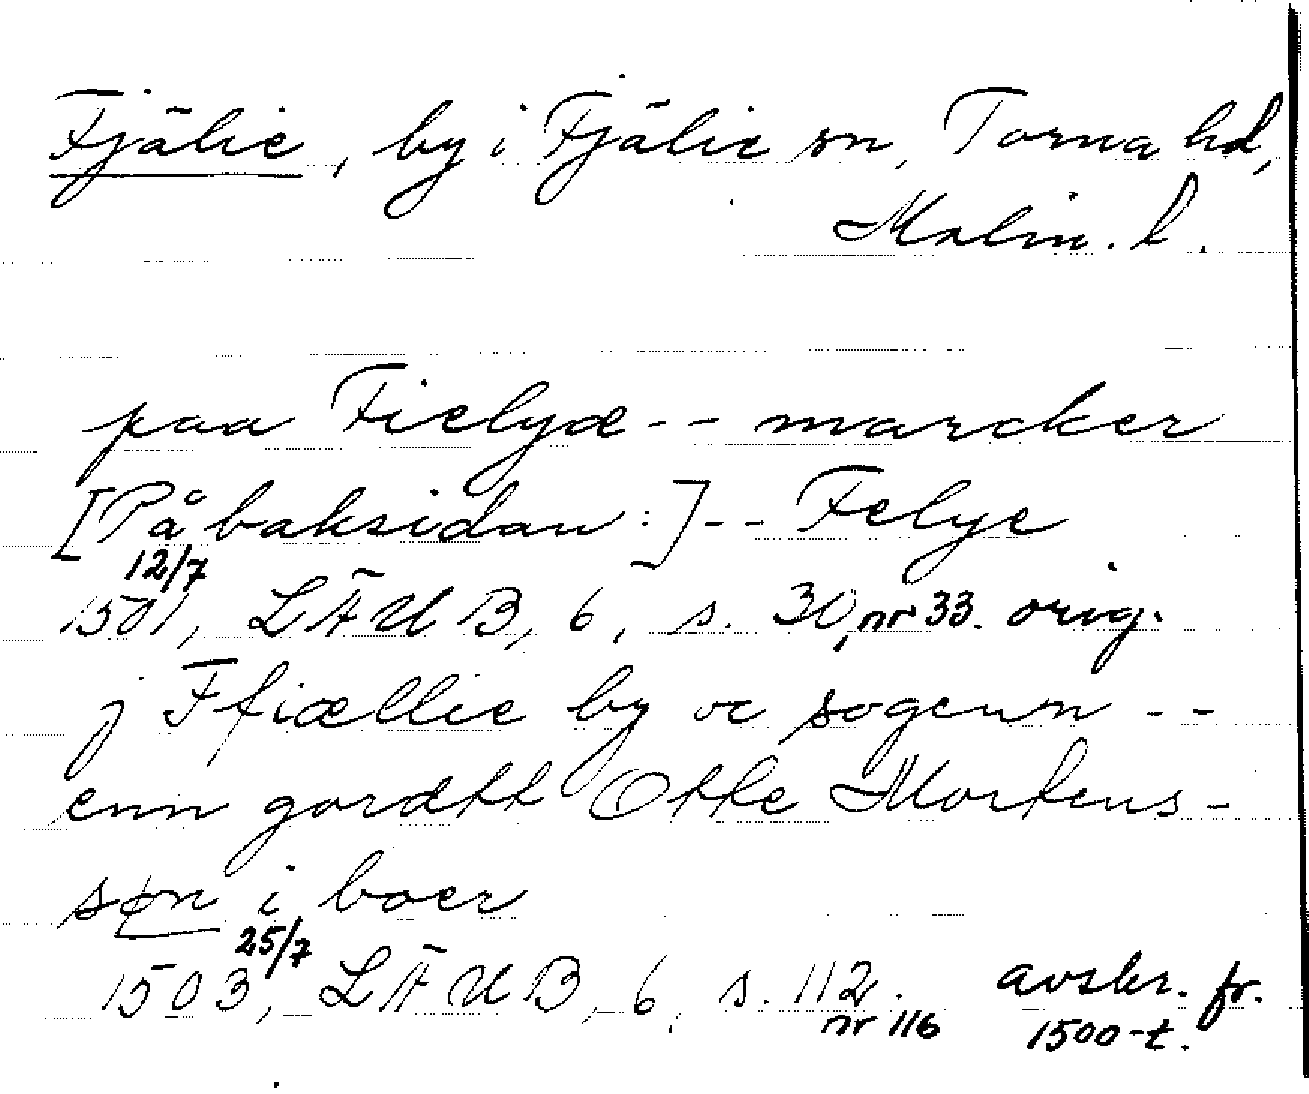 Fjälie, by i Fjälie sn, Torna hd,
Malm. l.
paa Fielyæ -- marcker
[På baksidan:] -- Felye
12/7
1501, LÄUB, 6, s. 30, nr 33. orig.
j Ffiællie by oc sogenn --
enn gordtt Otte Mortens-
søn i boer
25/7
1503, LÄUB, 6, s. 112. avskr. fr.
nr 116 1500-t.